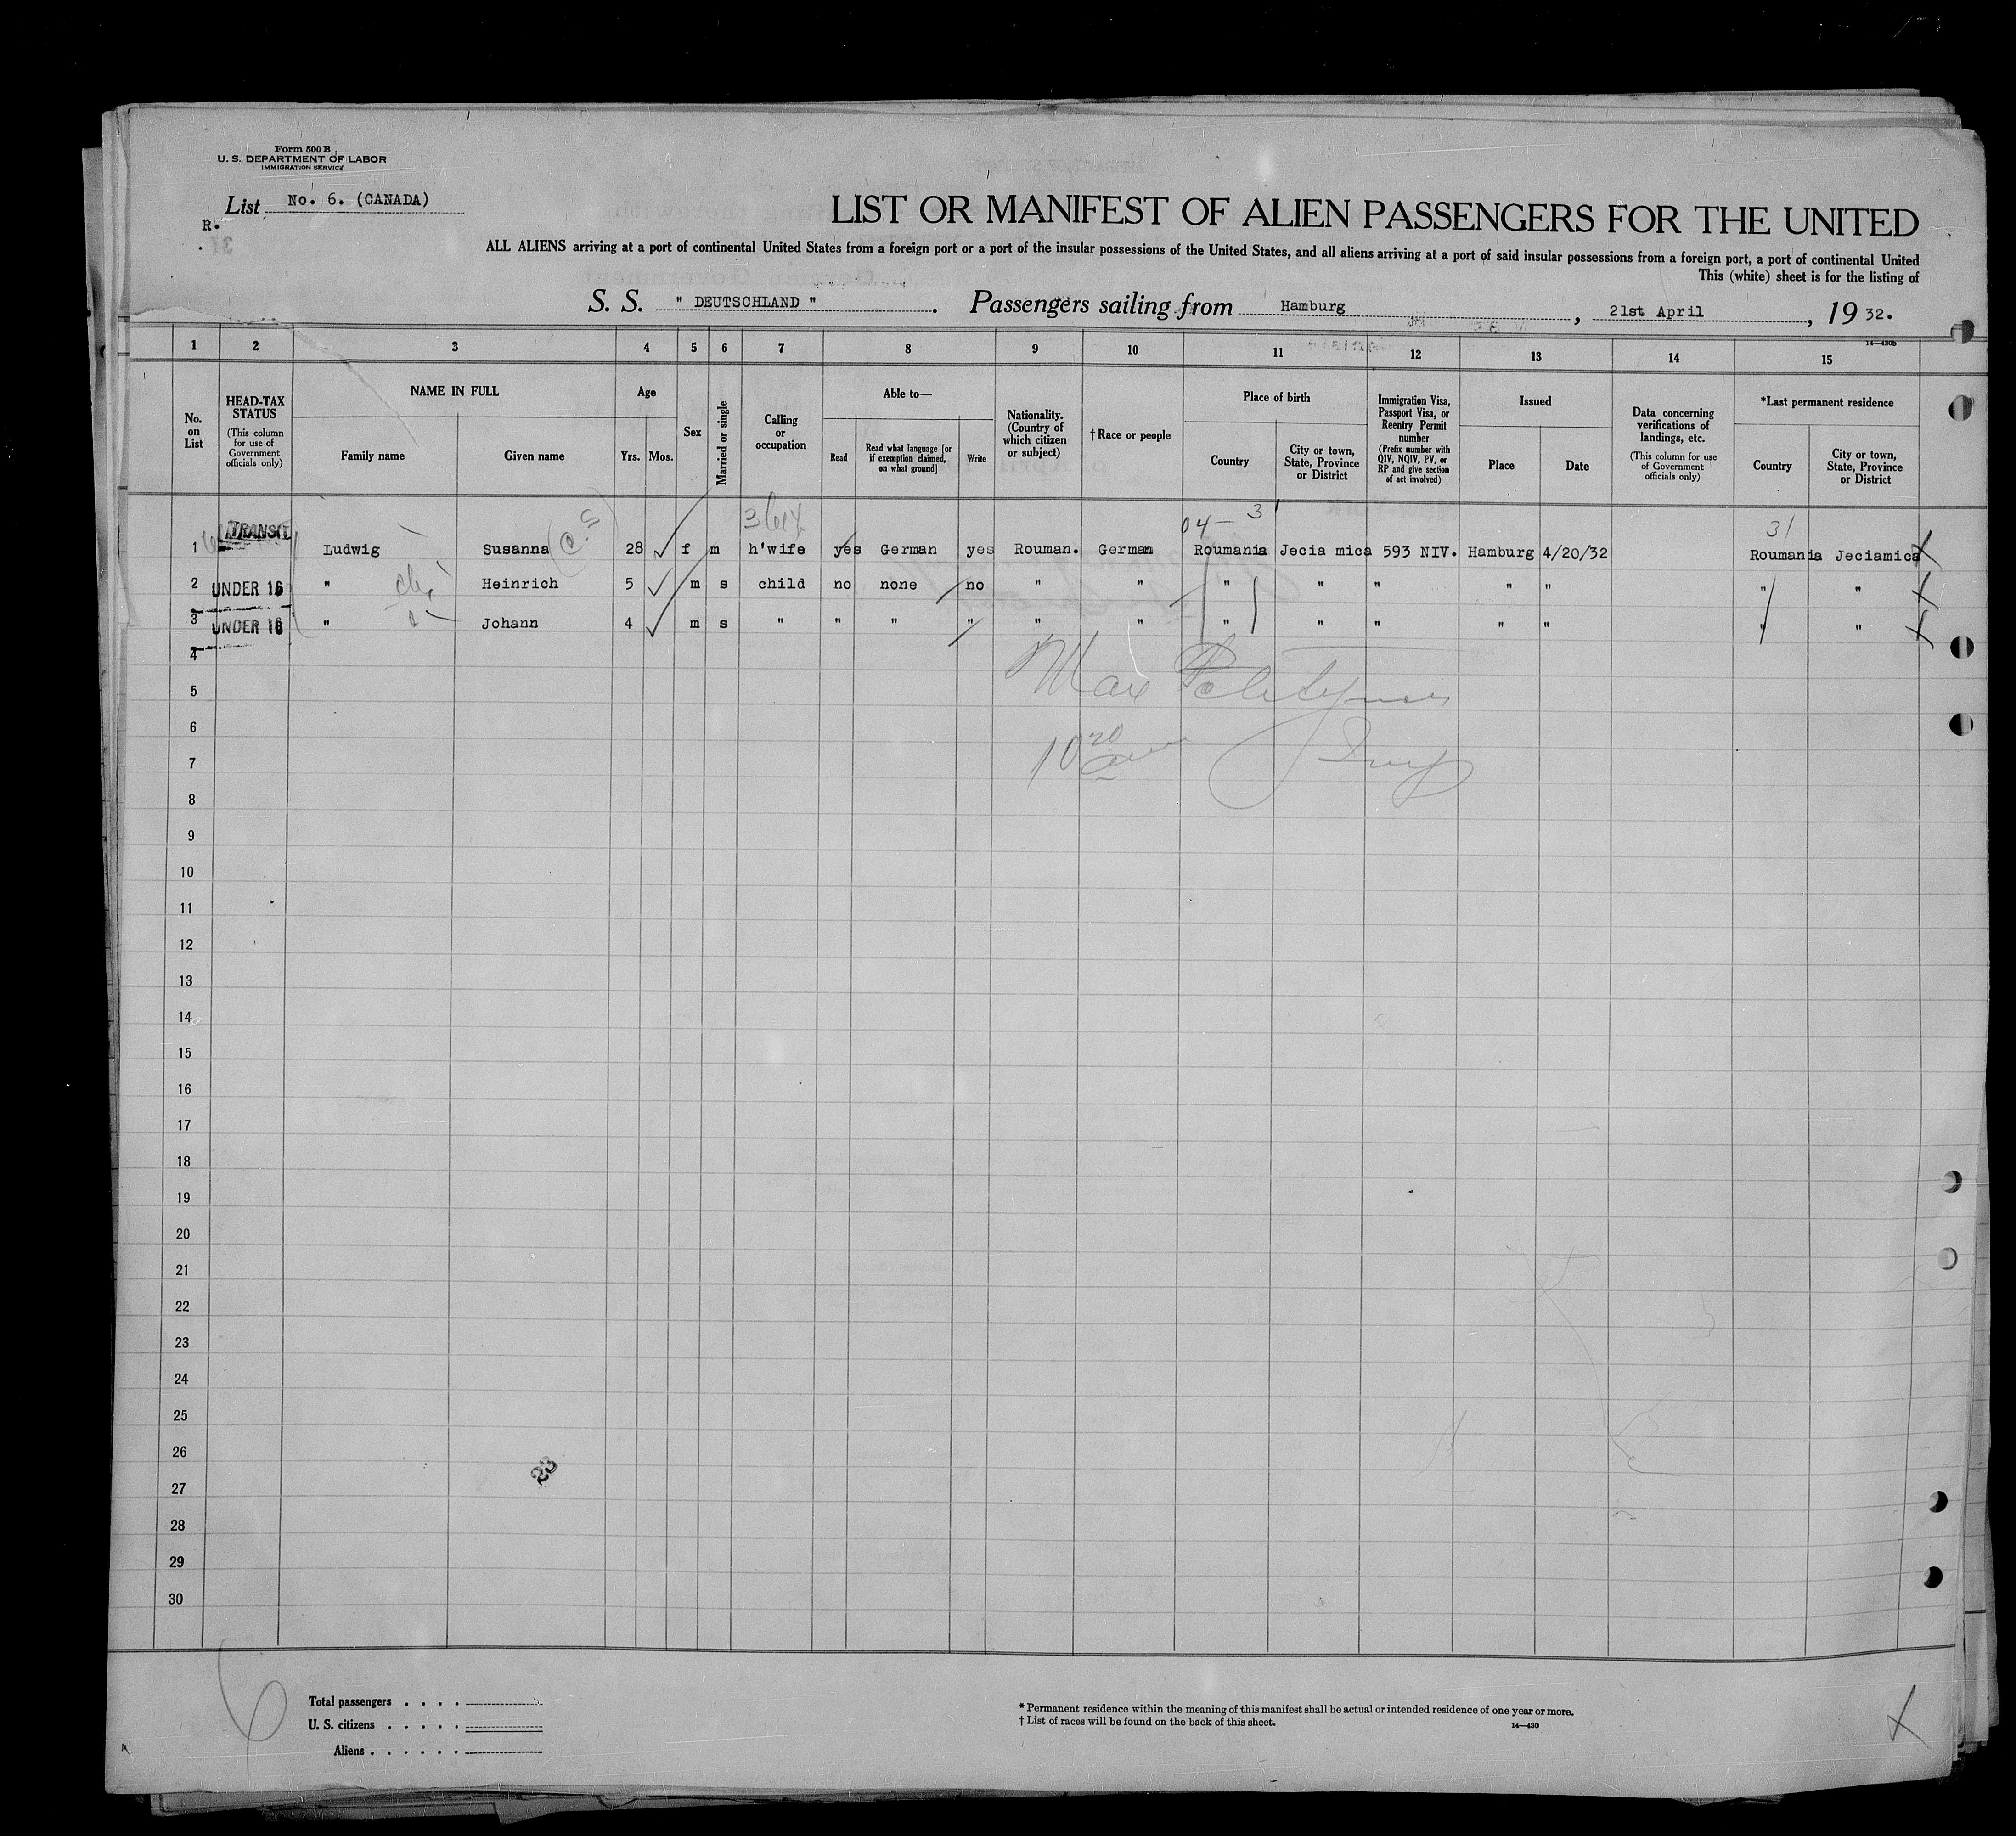 Form 500 B
U. S. DEPARTMENT OF LABOR
IMMIGRATION SERVICE
List No. 6. (CANADA)
R.
LIST OR MANIFEST OF ALIEN PASSENGERS FOR THE UNITED
ALL ALIENS arriving at a port of continental United States from a foreign port or a port of the insular possessions of the United States, and all aliens arriving at a port of said insular possessions from a foreign port, a port of continental United
This (white) sheet is for the listing of
S. S. " DEUTSCHLAND " . Passengers sailing from Hamburg , 21st April , 19 32.
14—430b
1 2 3 4 5 6 7 8 9 10 11 12 13 14 15
No. on List
HEAD-TAX STATUS (This column for use of Government officials only)
NAME IN FULL
Family name
Given name
Age
Yrs. Mos.
Sex
Married or single
Calling or occupation
Able to—
Read
Read what language [or if exemption claimed, on what ground]
Write
Nationality. (Country of which citizen or subject)
† Race or people
Place of birth
Country
City or town, State, Province or District
Immigration Visa, Passport Visa, or Reentry Permit number (Prefix number with QIV, NQIV, PV, or RP and give section of act involved)
Issued
Place
Date
Data concerning verifications of landings, etc. (This column for use of Government officials only)
*Last permanent residence
Country
City or town, State, Province or District
04 – 31 31
1 TRANSIT Ludwig Susanna 28 f m h'wife yes German yes Rouman. German Roumania Jecia mica 593 NIV. Hamburg 4/20/32 Roumania Jeciamica
2 UNDER 16 " Heinrich 5 m s child no none no " " " " " " " " "
3 UNDER 16 " Johann 4 m s " " " " " " " " " " " " "
4
Max
5
6
10 20
7
8
9
10
11
12
13
14
15
16
17
18
19
20
21
22
23
24
25
26
23
27
28
29
30
6
Total passengers . . . .
U. S. citizens . . . . .
Aliens . . . . . .
* Permanent residence within the meaning of this manifest shall be actual or intended residence of one year or more.
† List of races will be found on the back of this sheet.
14—430
X